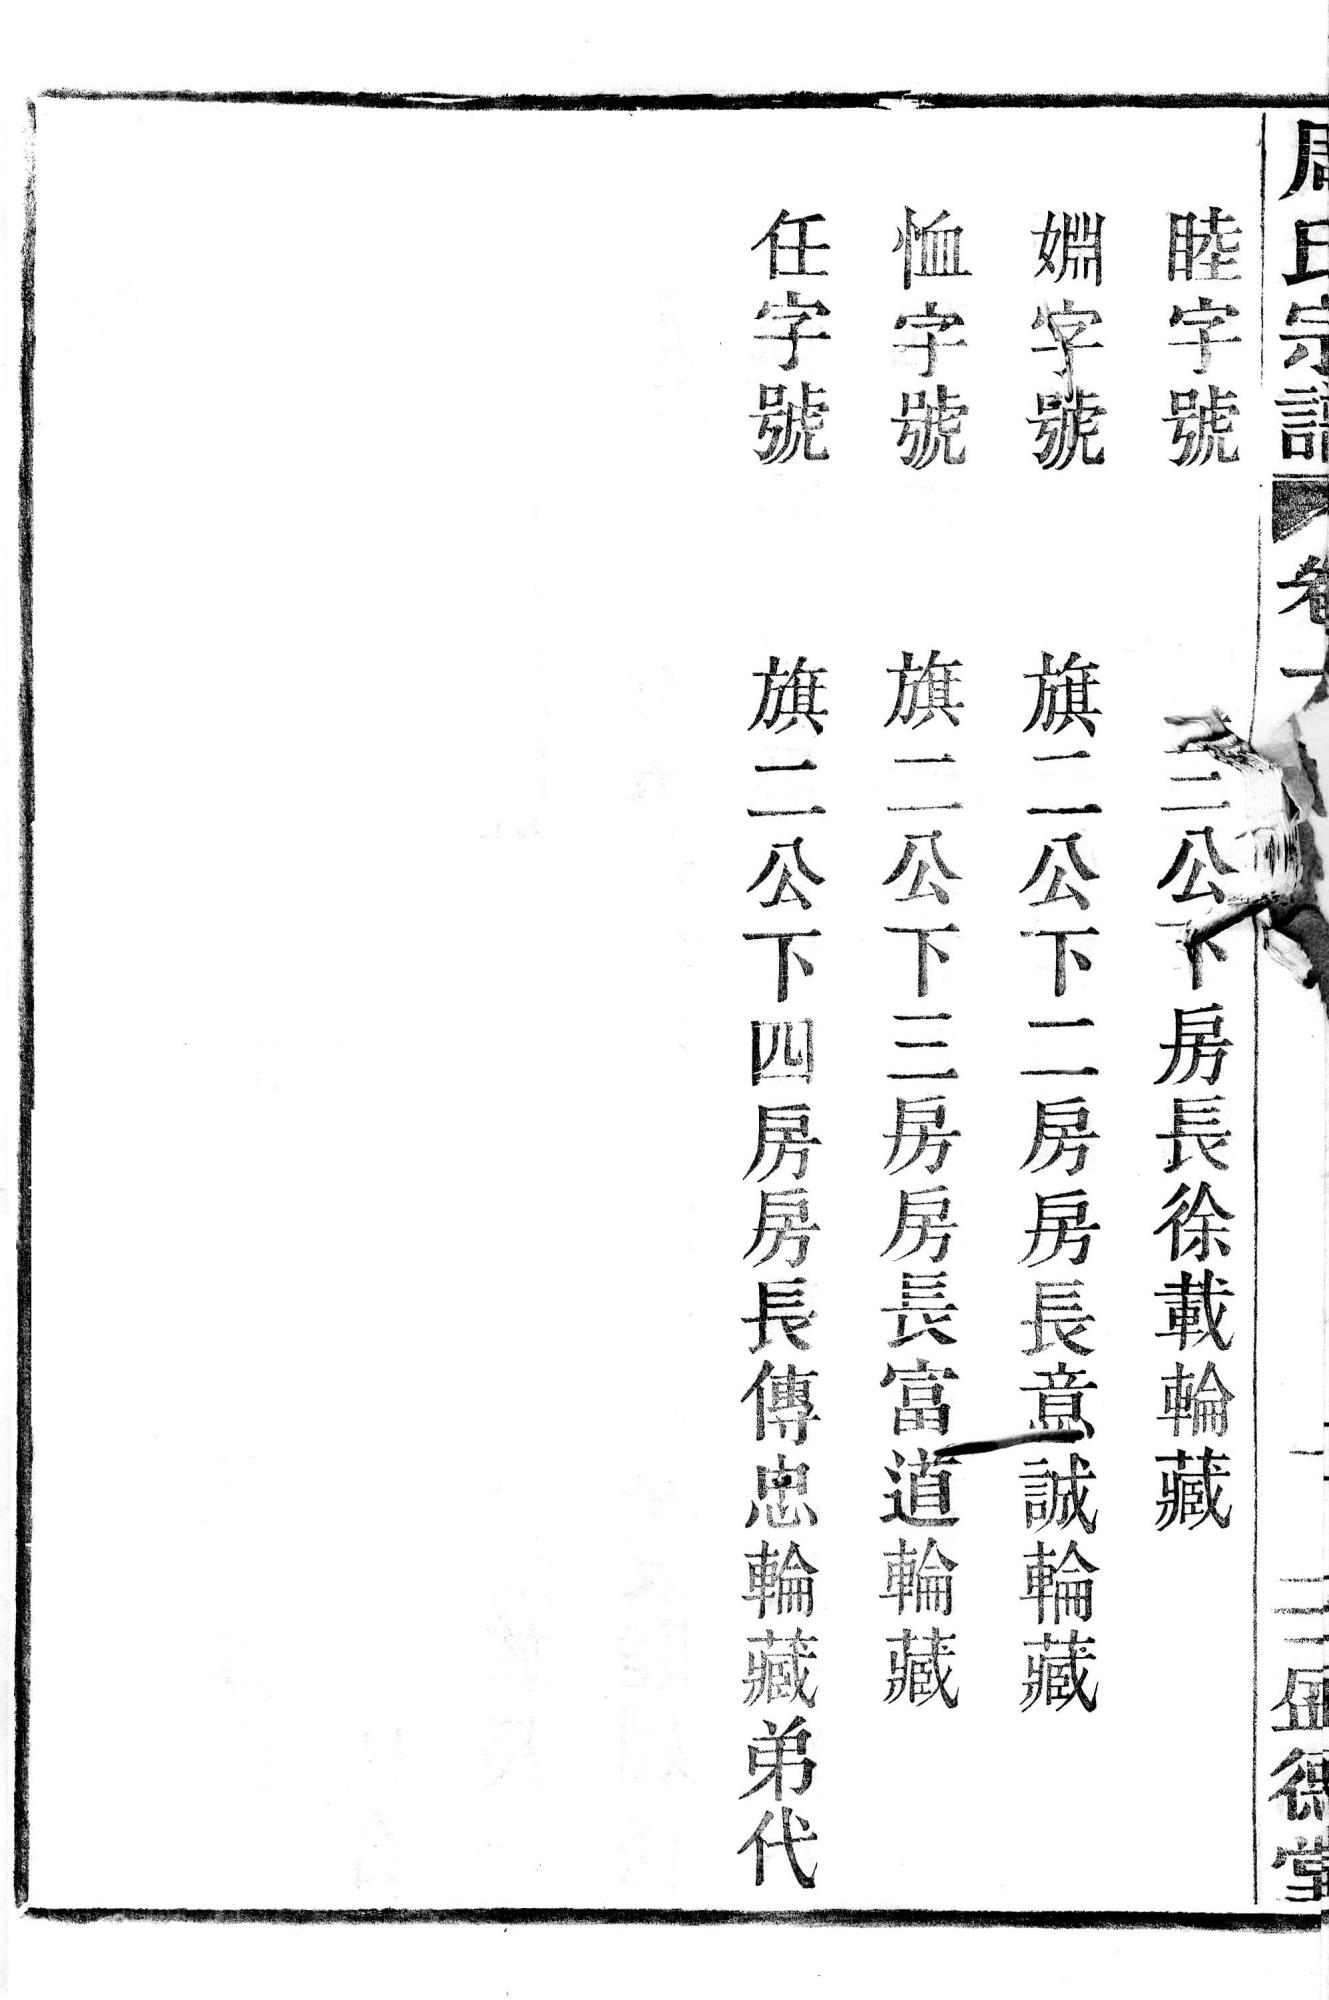 周氏宗譜
卷
盛德堂
睦字號　三公下房長徐載輪藏
婣字號　旗二公下二房房長意誠輪藏
恤字號　旗二公下三房房長富道輪藏
任字號　旗二公下四房房長傳忠輪藏弟代